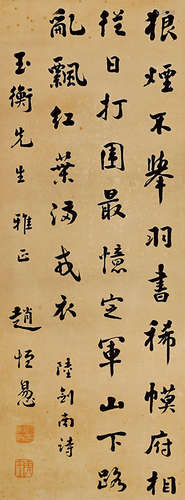 狼煙不舉羽書稀幙府相
從日打圍最憶定軍山下路
亂飄紅葉滿戎衣
陸劍南詩
玉衡先生雅正
趙恒惕